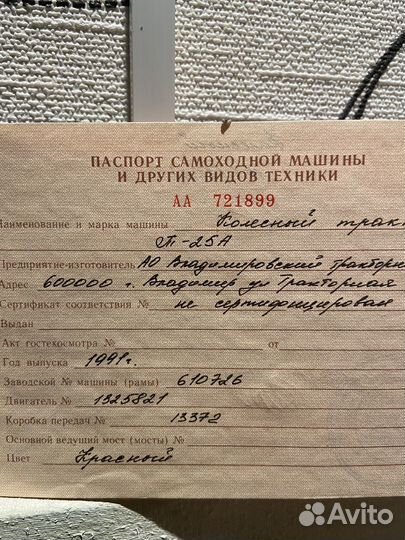 ПАСПОРТ САМОХОДНОЙ МАШИНЫ
И ДРУГИХ ВИДОВ ТЕХНИКИ
АА 721899
Наименование и марка машины Колесный трак
Т-25А
Предприятие-изготовитель АО Владимировский тракторн
Адрес 600000 г. Владимир ул Тракторная
Сертификат соответствия № не сертифицирован
Выдан
Акт гостехосмотра № от
Год выпуска 1991г.
Заводской № машины (рамы) 610726
Двигатель № 1325821
Коробка передач № 13372
Основной ведущий мост (мосты) №
Цвет Красный
Avito